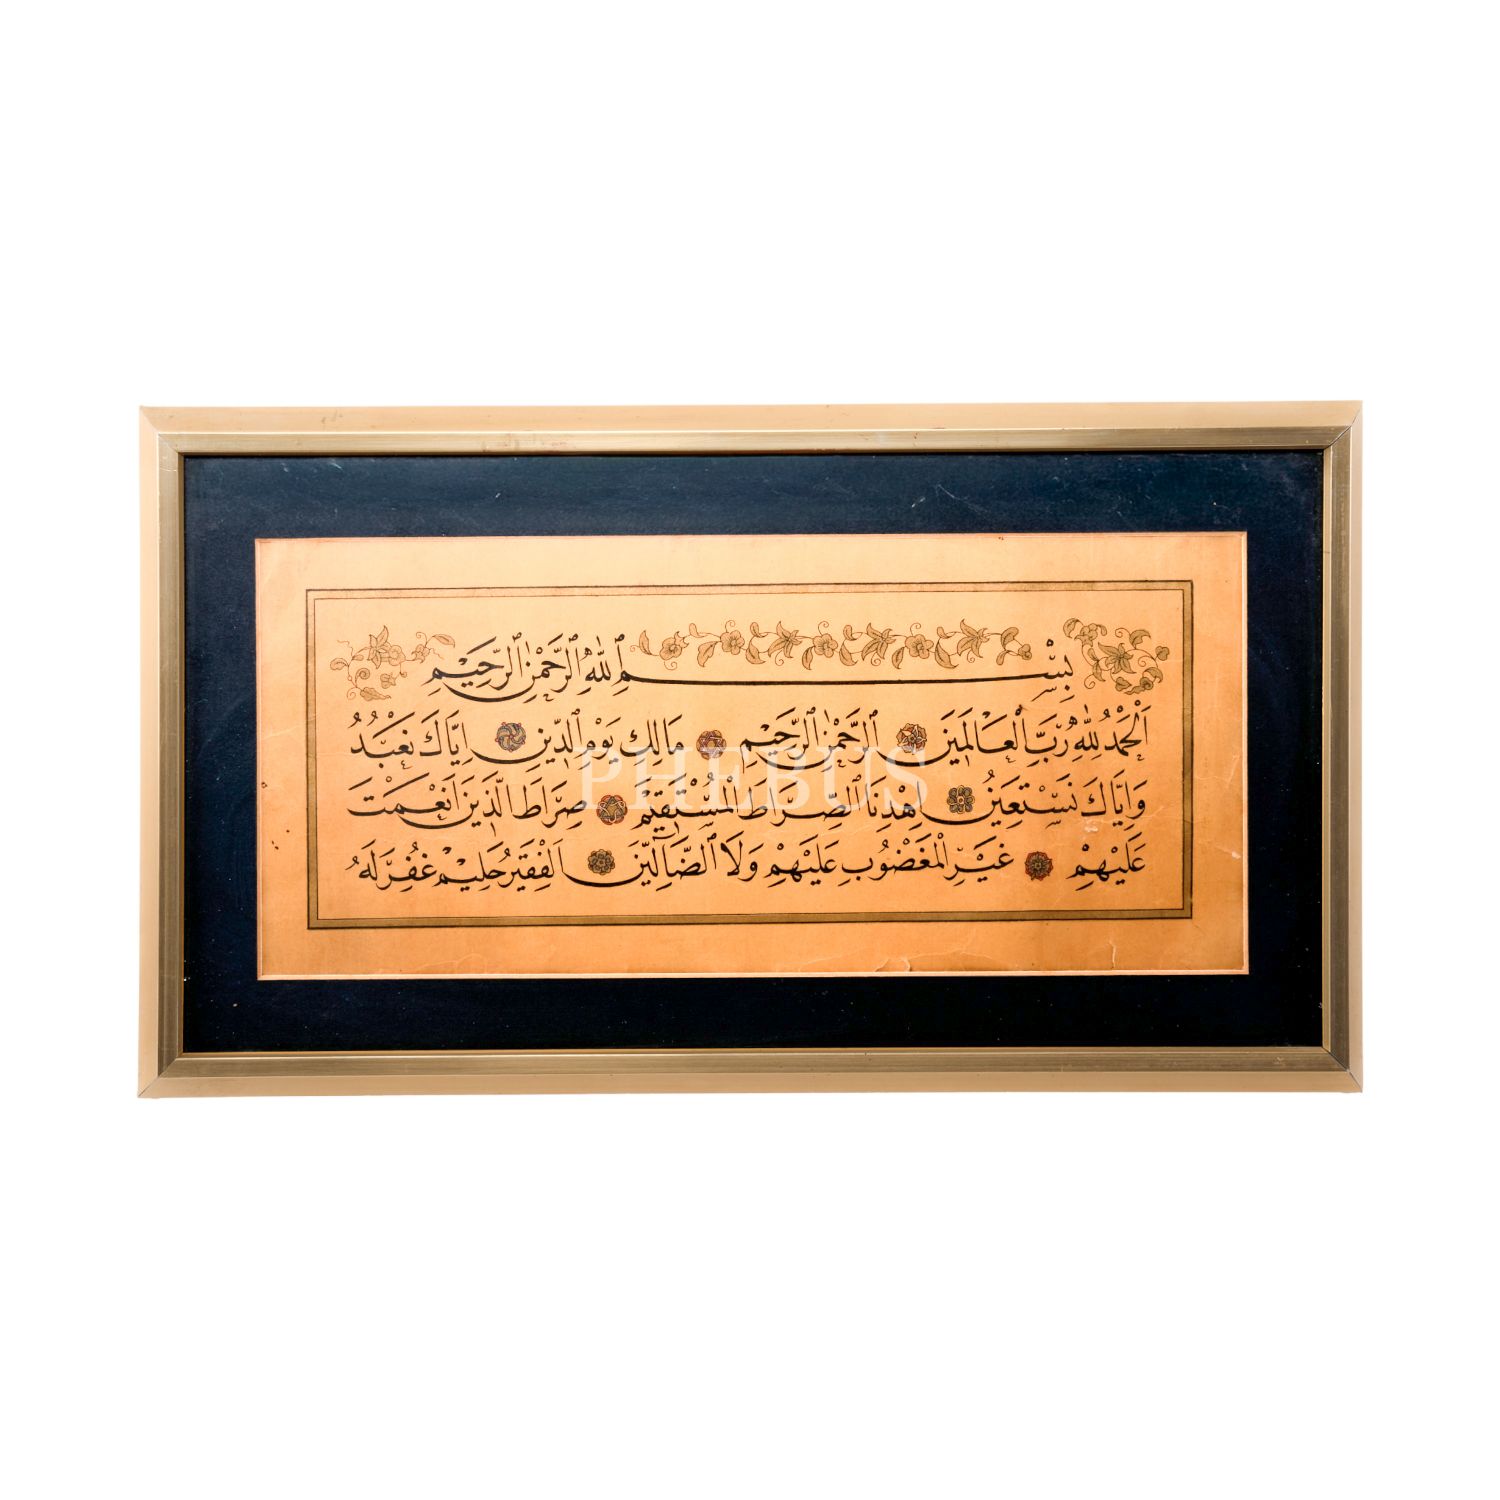 بِسْمِ ٱللهِ ٱلرَّحْمٰنِ ٱلرَّحِيْمِ
اَلْحَمْدُ لِلهِ رَبِّ الْعَالَمِينَ ٱلرَّحْمٰنِ ٱلرَّحِيْمِ مَالِكِ يَوْمِ الدِّينِ اِيَّاكَ نَعْبُدُ
وَاِيَّاكَ نَسْتَعِينُ اِهْدِنَا الصِّرَاطَ الْمُسْتَقِيْمَ صِرَاطَ الَّذِينَ اَنْعَمْتَ
عَلَيْهِمْ غَيْرِ الْمَغْضُوبِ عَلَيْهِمْ وَلَا الضَّآلِّينَ اَلْفَقِيرُ حَلِيْم غُفِرَ لَهُ
PHEBUS